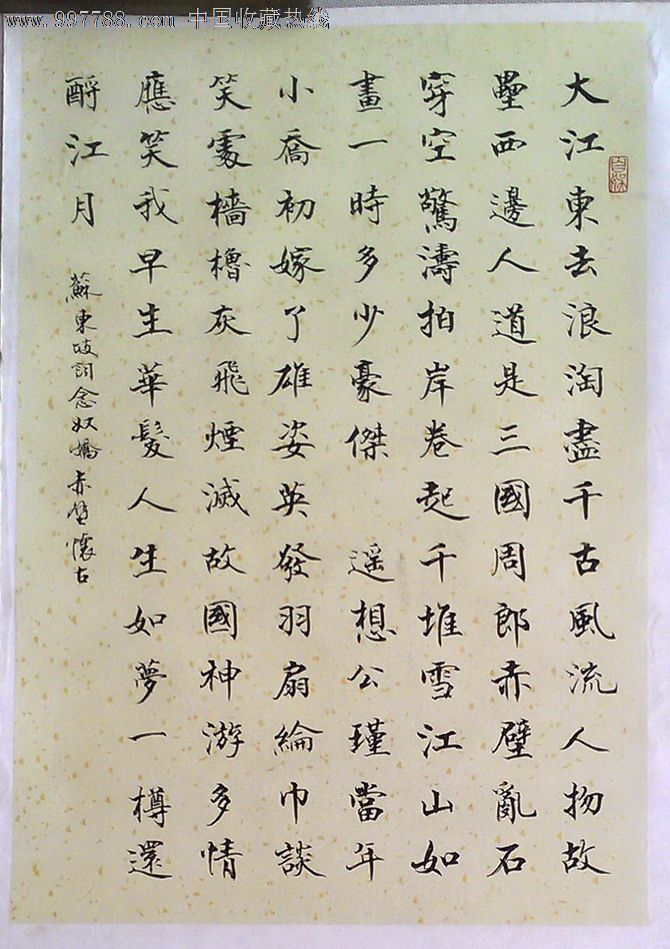 www.997788.com 中国收藏热线
大江東去浪淘盡千古風流人物故
壘西邊人道是三國周郎赤壁亂石
穿空驚濤拍岸卷起千堆雪江山如
畫一時多少豪傑 遥想公瑾當年
小喬初嫁了雄姿英發羽扇綸巾談
笑處檣櫓灰飛煙滅故國神游多情
應笑我早生華髮人生如夢一樽還
酹江月
蘇東坡詞念奴嬌赤壁懷古